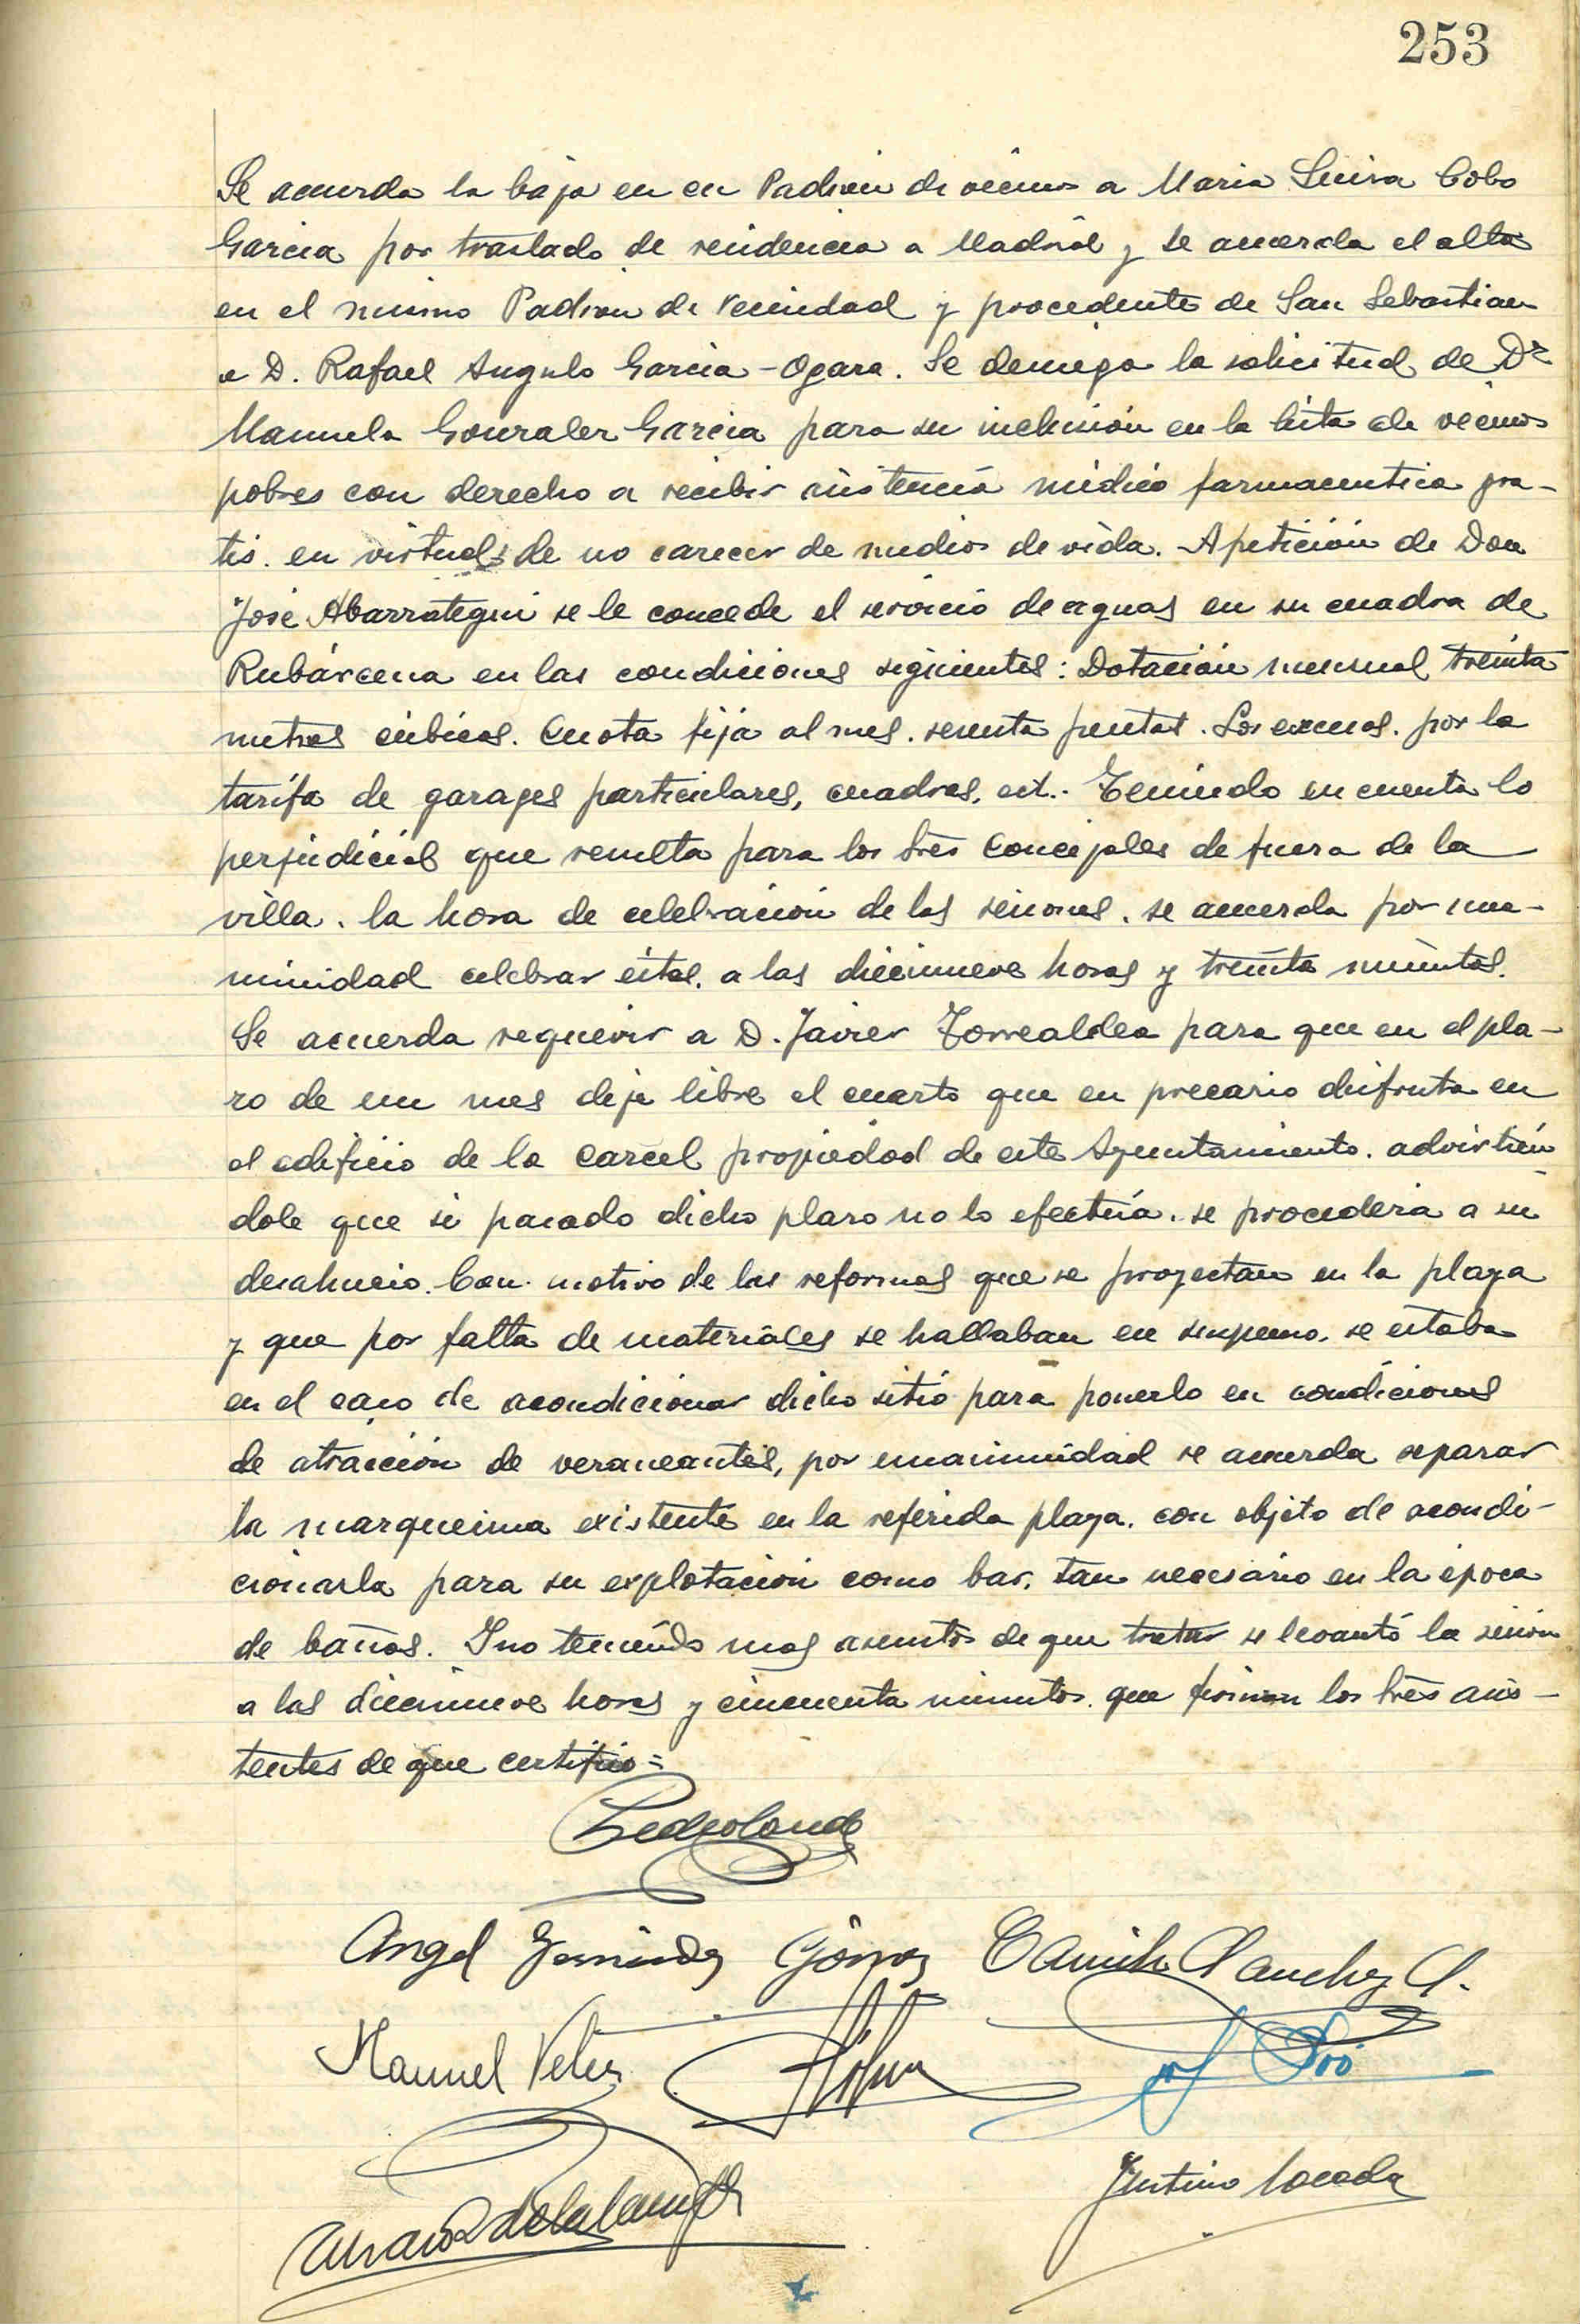 253
Se acuerda la baja en en Padron de vecinos a Maria Luisa Cobo
Garcia por traslado de residencia a Madrid y se acuerda el alta
en el mismo Padron de vecindad y procedente de San Sebastian
a D. Rafael Angulo Garcia-Ogara. Se deniega la solicitud de Dª
Manuela Gonzalez Garcia para su inclusión en la lista de vecinos
pobres con derecho a recibir asistencia médico farmaceutica gra-
tis. en virtud de no carecer de medios de vida. A petición de Don
José Abarrategui se le concede el servicio de aguas en su cuadra de
Rubárcena en las condiciones siguientes: Dotación mensual treinta
metros cúbicos. Cuota fija al mes. sesenta pesetas. Los excesos. por la
tarifa de garages particulares, cuadras, ect.. Teniendo en cuenta lo
perjudicial que resulta para los tres Concejales de fuera de la
villa. la hora de celebración de las sesiones. se acuerda por una-
nimidad celebrar estas. a las diecinueve horas y treinta minutos.
Se acuerda requerir a D. Javier Torrealdea para que en el pla-
zo de un mes deje libre el cuarto que en precario disfruta en
el edificio de la Carcel propiedad de este Ayuntamiento. advirtien
dole que si pasado dicho plazo no lo efectúa. se procederia a su
desahucio. Con motivo de las reformas que se proyectan en la plaza
y que por falta de materiales se hallaban en suspenso. se estaba
en el caso de acondicionar dicho sitio para ponerlo en condiciones
de atracción de veraneantes, por unanimidad se acuerda separar
la marquesina existente en la referida plaza. con objeto de acondi-
cionarla para su explotación como bar. tan necesario en la época
de baños. Y no teniendo mas asuntos de que tratar se levantó la sesión
a las diecinueve horas y cincuenta minutos. que firman los tres asis-
tentes de que certifico=
Angel Fernandez Gómez Camilo Sanchez A.
Manuel Velez
Justino Loceda